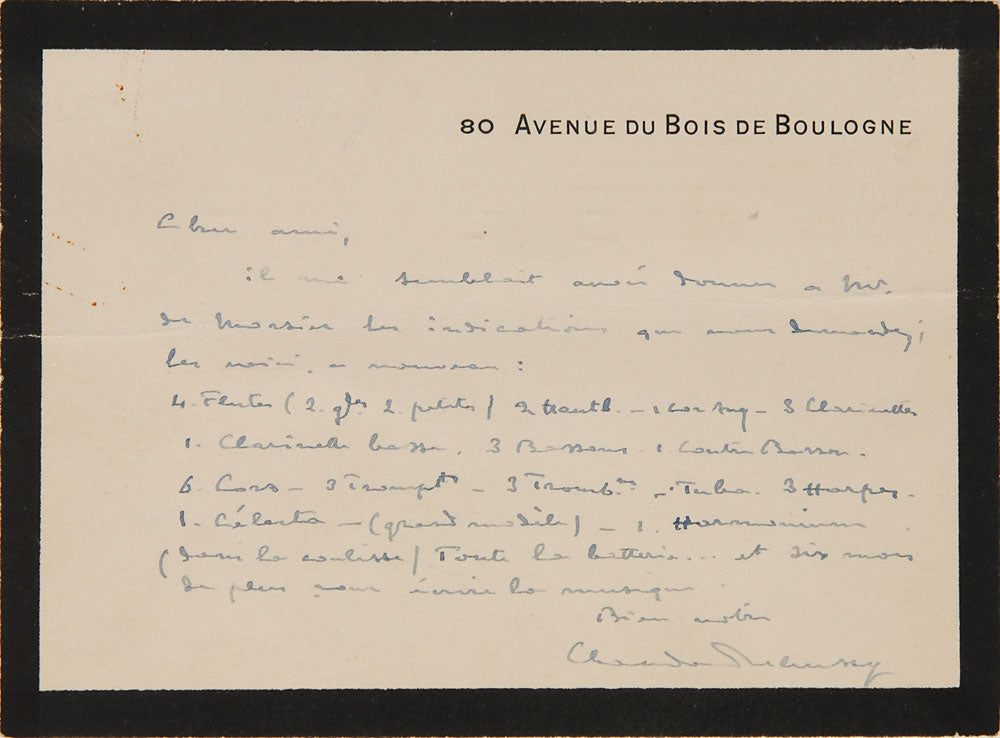 80 AVENUE DU BOIS DE BOULOGNE
Cher ami,
il me semblait avoir donner a Mr.
de Morsier les indications que vous demandez;
les voici, a nouveau :
4. Flutes (2. gdes 2. petits) 2 hautb. – 1 Cor Ang – 3 Clarinettes
1. Clarinette basse. 3 Bassons. 1. Contre Basson.
6. Cors – 3 Trompts – 3 Tromb.nes – Tuba. 3 Harpes.
1. Célesta – (grand modèle) – 1. Harmonium
(dans la coulisse) Toute la batterie... et six mois
de plus pour écrire la musique
Bien votre
Claude Debussy